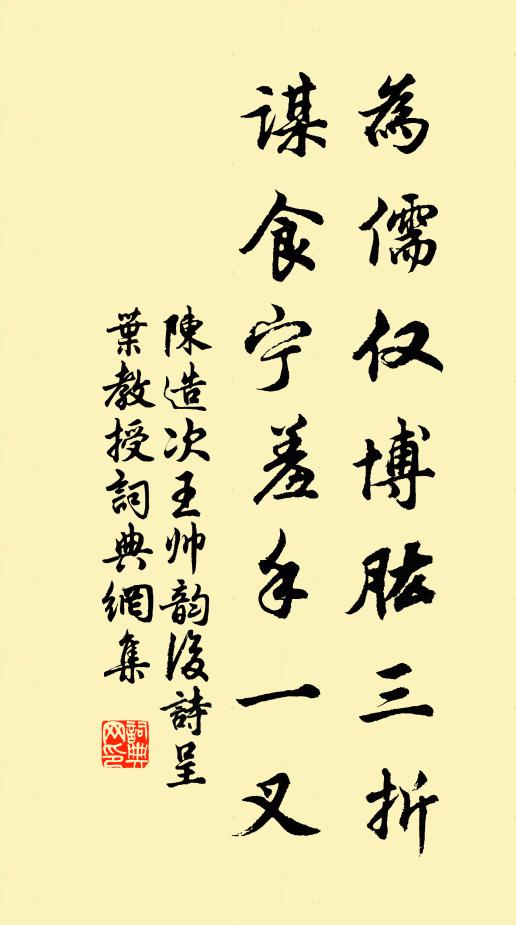 為儒仅博肱三折
謀食宁羞手一叉
陳造次王帅韵後詩呈
葉教授詞典網集
詞典
网印